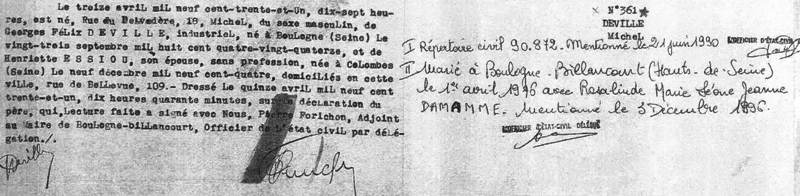 Le treize avril mil neuf cent-trente-et-Un, dix-sept heu-
res, est né, Rue du Belvédère, 18, Michel, du sexe masculin, de
Georges Félix D E V I L L E, industriel, né à Boulogne (Seine) Le
vingt-trois septembre mil huit cent quatre-vingt-quatorze, et de
Henriette E S S I O U, son épouse, sans profession, née à Colombes
(Seine) Le neuf décembre mil neuf cent-quatre, domiciliés en cette
ville, rue de Bellevue, 109.- Dressé Le quinze avril mil neuf cent
trente-et-un, dix heures quarante minutes, sur la déclaration du
père, qui, Lecture faite a signé avec Nous, Pierre Forichon, Adjoint
au Maire de Boulogne-billancourt, Officier de l'état civil par délé-
gation./.
N° 361
DEVILLE
Michel
I Répertoire civil 90.872. Mentionné le 21 juin 1990
II Marié à Boulogne-Billancourt (Hauts-de-Seine)
le 1er avril 1976 avec Rosalinde Marie Léone Jeanne
DAMAMME. Mentionné le 3 Décembre 1996.
L'OFFICIER D'ÉTAT-CIVIL DÉLÉGUÉ